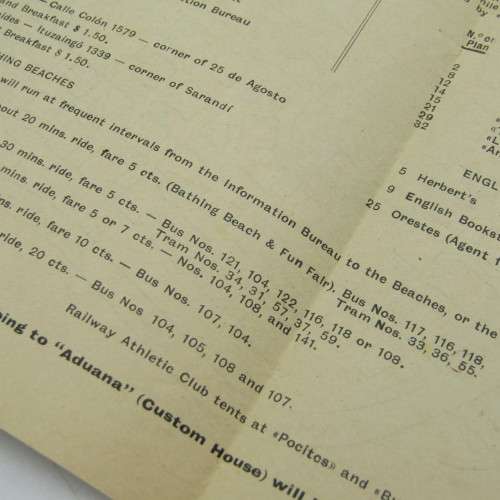 mation Bureau
— Calle Colón 1579 — corner of 25 de Agosto
and Breakfast $ 1.50.
ides — Ituzaingó 1339 — corner of Sarandí
Breakfast $ 1.50.
HING BEACHES
will run at frequent intervals from the Information Bureau to the Beaches, or the
out 20 mins. ride, fare 5 cts. (Bathing Beach & Fun Fair). Bus Nos. 117, 116, 118,
Tram Nos. 33, 36, 55.
30 mins. ride, fare 5 cts. — Bus Nos. 121, 104, 122, 116, 118 or 108.
Tram Nos. 34, 31, 57, 37, 59.
mins. ride, fare 5 or 7 cts. — Nos. 104, 108, and 141.
ns. ride, fare 10 cts. — Bus Nos. 107, 104.
ride, 20 cts. — Bus Nos 104, 105, 108 and 107.
Railway Athletic Club tents at «Pocitos» and «B
ping to "Aduana" (Custom House) will
by
N.º of
Plan
2
8
12
14
15
21
29
32
«L
«Ar
ENGL
5 Herbert's
9 English Bookst
25 Orestes (Agent f